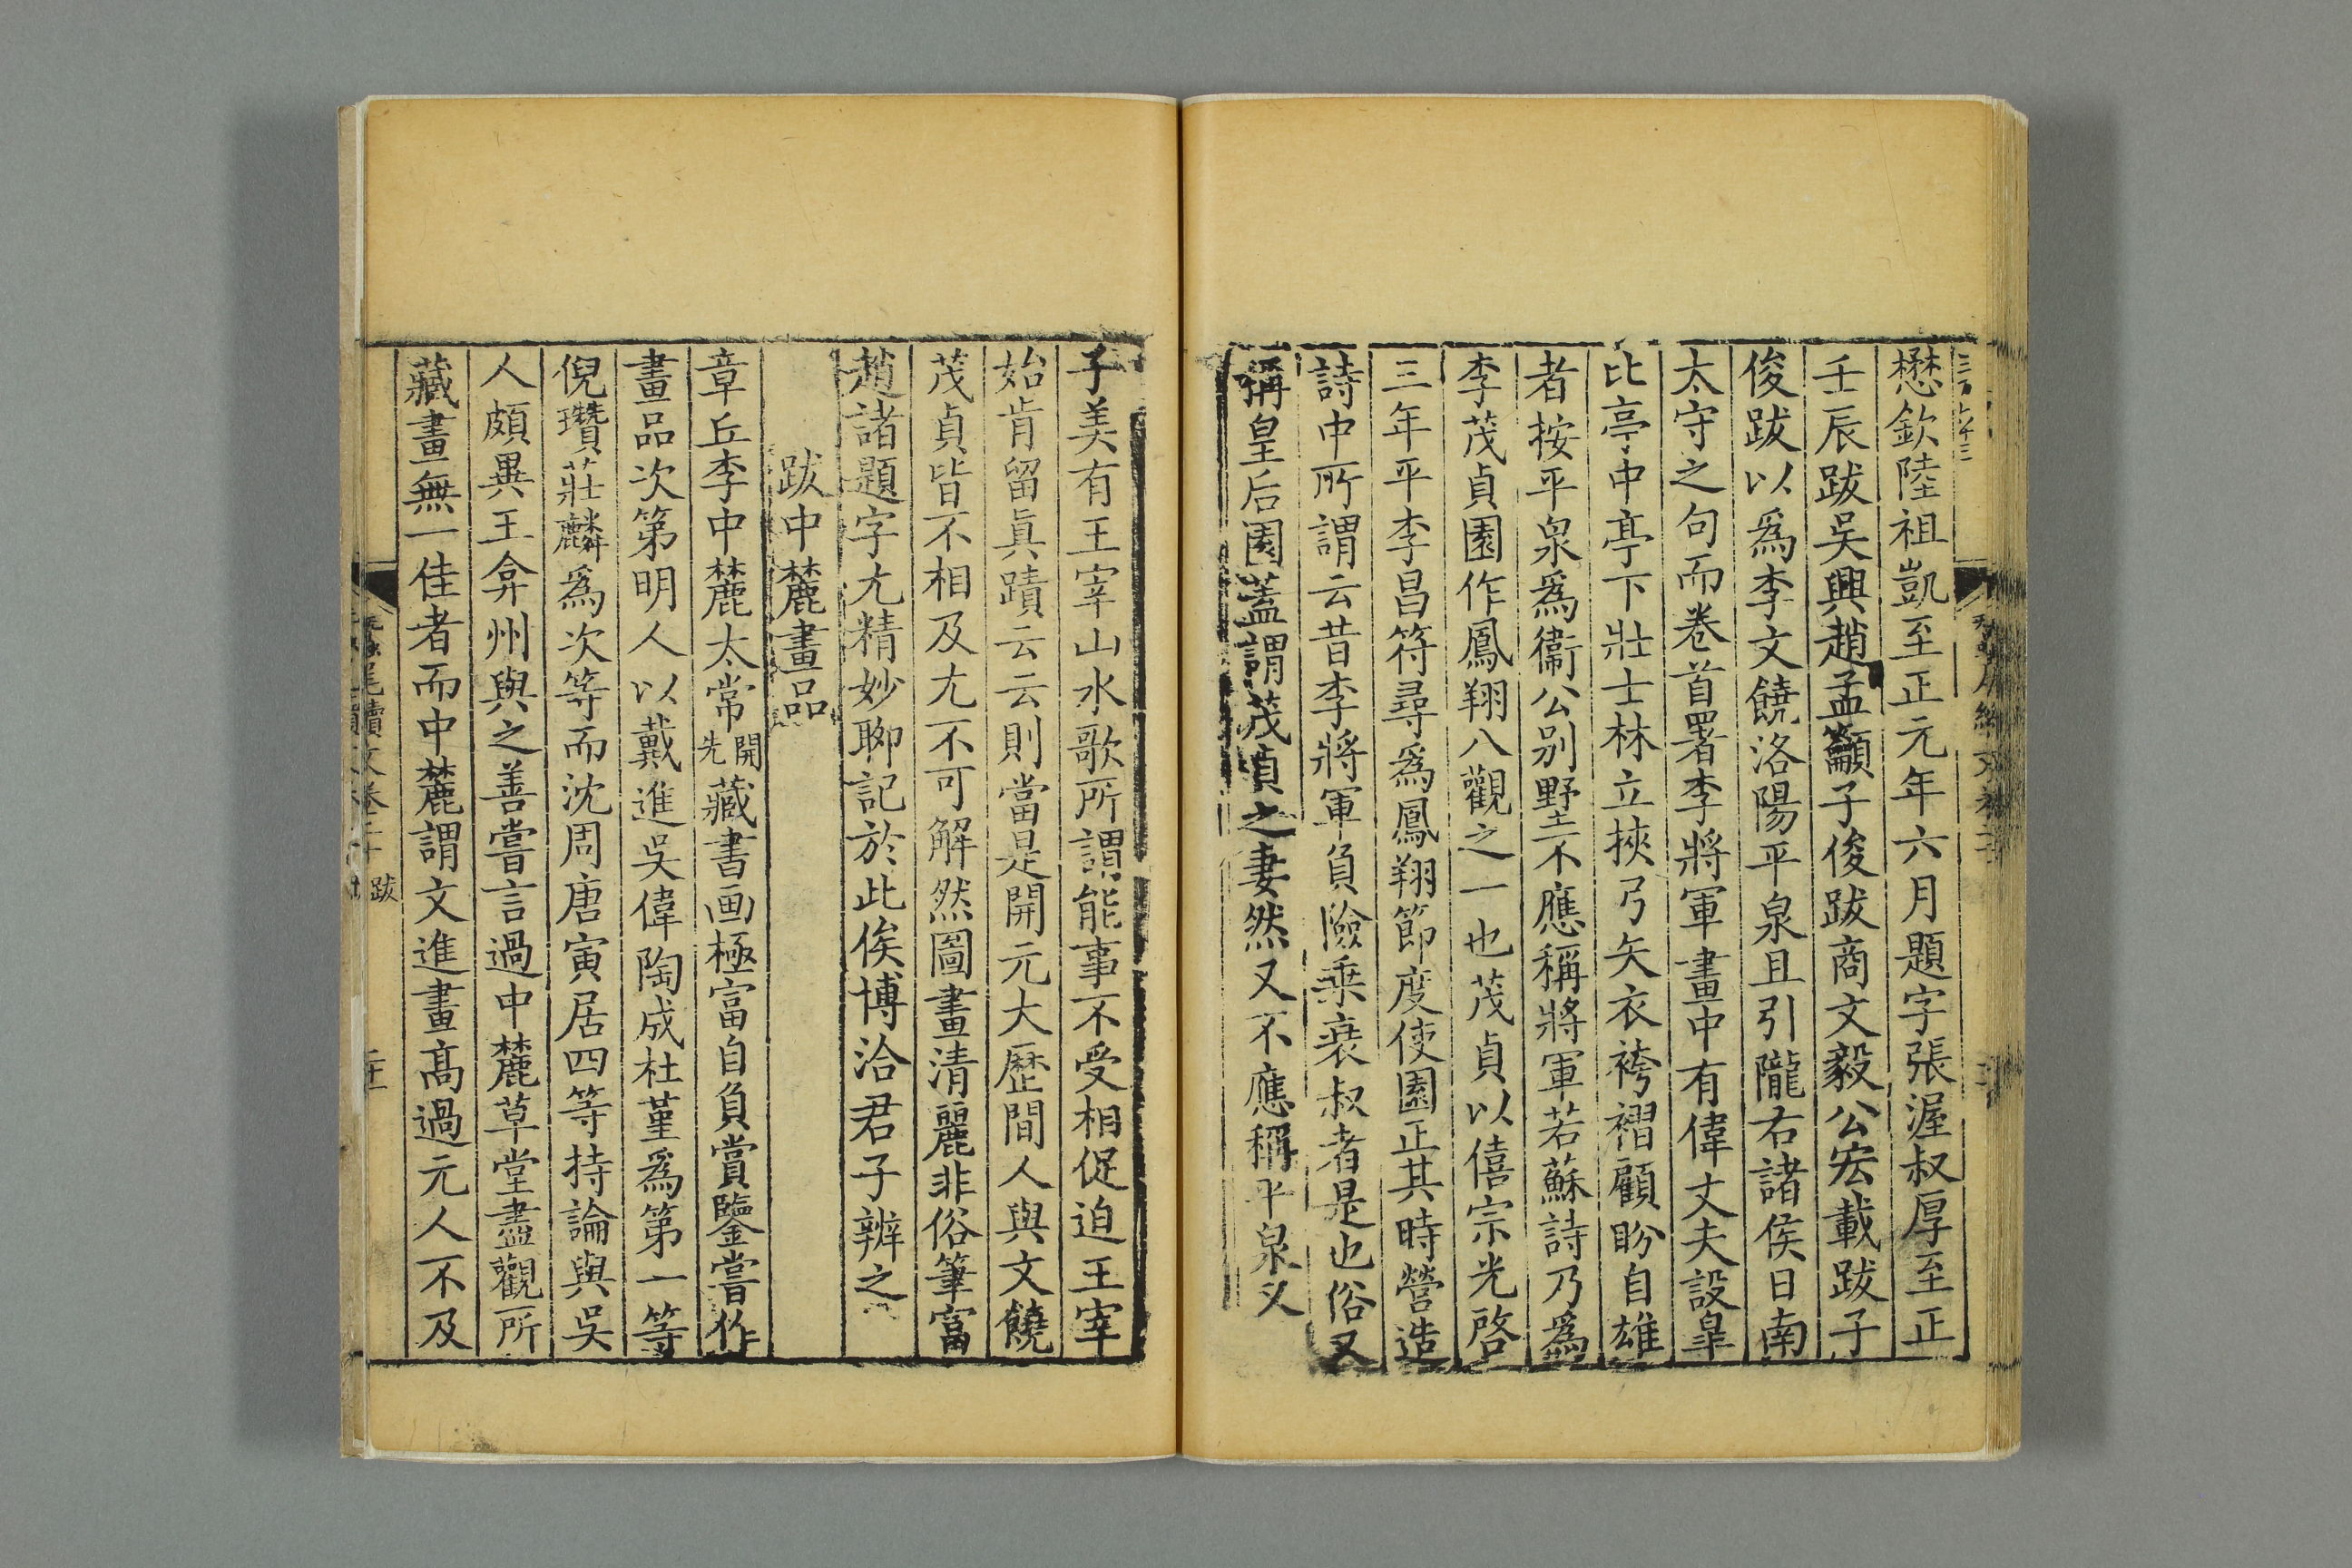 懋欽陸祖凱至正元年六月題字張渥叔厚至正
壬辰跋吳興趙孟籲子俊跋商文毅公宏載跋子
俊跋以爲李文饒洛陽平泉且引隴右諸侯日南
太守之句而卷首署李將軍畫中有偉丈夫設皐
比亭中亭下壯士林立挾弓矢衣袴褶顧盼自雄
者按平泉爲衞公别野不應稱將軍若蘇詩乃爲
李茂貞園作鳳翔八觀之一也茂貞以僖宗光啓
三年平李昌符尋爲鳳翔節度使園正其時營造
詩中所謂云昔李將軍負險乗衰叔者是也俗又
稱皇后園蓋謂茂貞之妻然又不應稱平泉又
子美有王宰山水歌所謂能事不受相促迫王宰
始肯留眞蹟云云則當是開元大歷間人與文饒
茂貞皆不相及尢不可解然圖畫清麗非俗筆富
趙諸題字尢精妙聊記於此俟博洽君子辨之
跋中麓畫品
章丘李中麓太常開先藏書画極富自負賞鑒嘗作
畫品次第明人以戴進吳偉陶成杜堇爲第一等
倪瓚莊麟爲次等而沈周唐寅居四等持論與吳
人頗異王弇州與之善嘗言過中麓草堂盡觀所
藏畫無一佳者而中麓謂文進畫髙過元人不及
蠶尾續文卷二十 跋